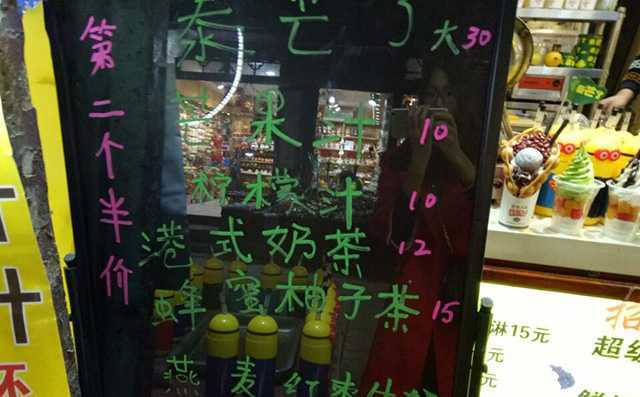 第二个半价
泰芒了 大30
苹果汁 10
柠檬汁 10
港式奶茶 12
蜂蜜柚子茶 15
燕麦红枣牛奶
汁
杯
淋15元
元
元
招
超级